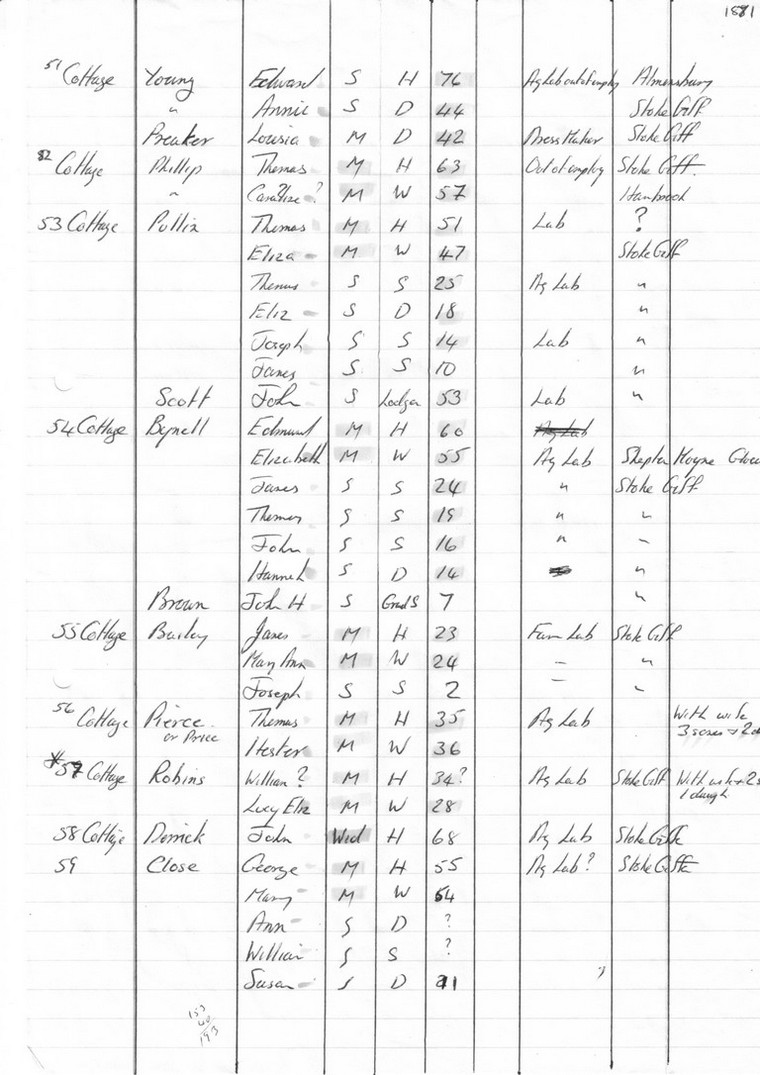 1881
51 Cottage Young Edward S H 76 Ag Lab out of employ Almonsbury
" Annie S D 44 Stoke Giff
Preaker Louisia M D 42 Dress Maker Stoke Giff
52 Cottage Phillip Thomas M H 63 Out of employ Stoke Giff.
" ? M W 57 Hambrook
53 Cottage Pullin Thomas M H 51 Lab ?
Eliza M W 47 Stoke Giff
Thomas S S 25 Ag Lab "
Eliz S D 18 "
Joseph S S 14 Lab "
James S S 10 "
Scott John S Lodger 53 Lab "
54 Cottage Bynell Edmund M H 60 Ag Lab
Elizabeth M W 55 Ag Lab Shepton Moyne Glouc
James S S 24 " Stoke Giff
Thomas S S 19 " "
John S S 16 " "
Hannah S D 14 "
Brown John H S Grand S 7 "
55 Cottage Bailey James M H 23 Farm Lab Stoke Giff
Mary Ann M W 24 – "
Joseph S S 2 – "
56 Cottage Pierce Thomas M H 35 Ag Lab With wife
or Price 3 sons + 2 d
Hester M W 36
*57 Cottage Robins William ? M H 34? Ag Lab Stoke Giff With wife + 2 s
1 daugh
Lucy Eliz M W 28
58 Cottage Derrick John Wid H 68 Ag Lab Stoke Giff
59 Close George M H 55 Ag Lab? Stoke Giff
Mary M W 54
Ann S D ?
William S S ?
Susan S D 11
153
40
193